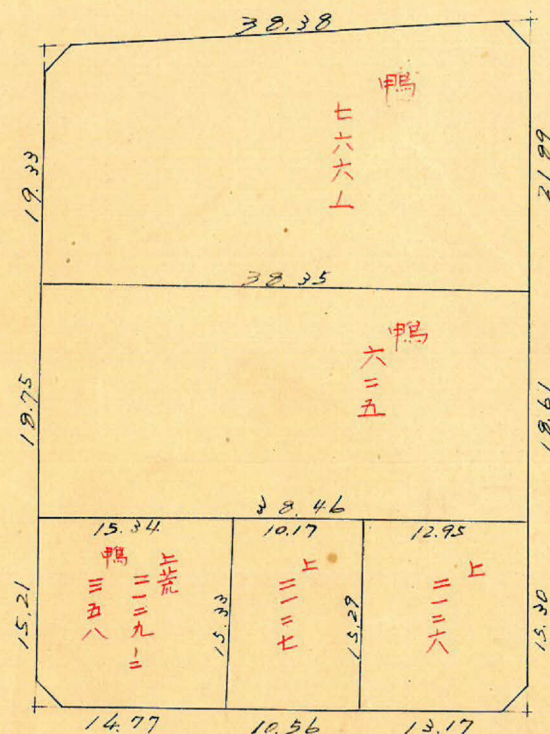 38.38
鴨
七六六ノ一
19.33
21.89
38.35
鴨
六二五
18.75
18.61
38.46
15.34
10.17
12.95
上荒
二一二九ノ二
鴨
三五八
上
二一二七
上
二一二六
15.21
15.33
15.29
15.30
14.77
10.56
13.17